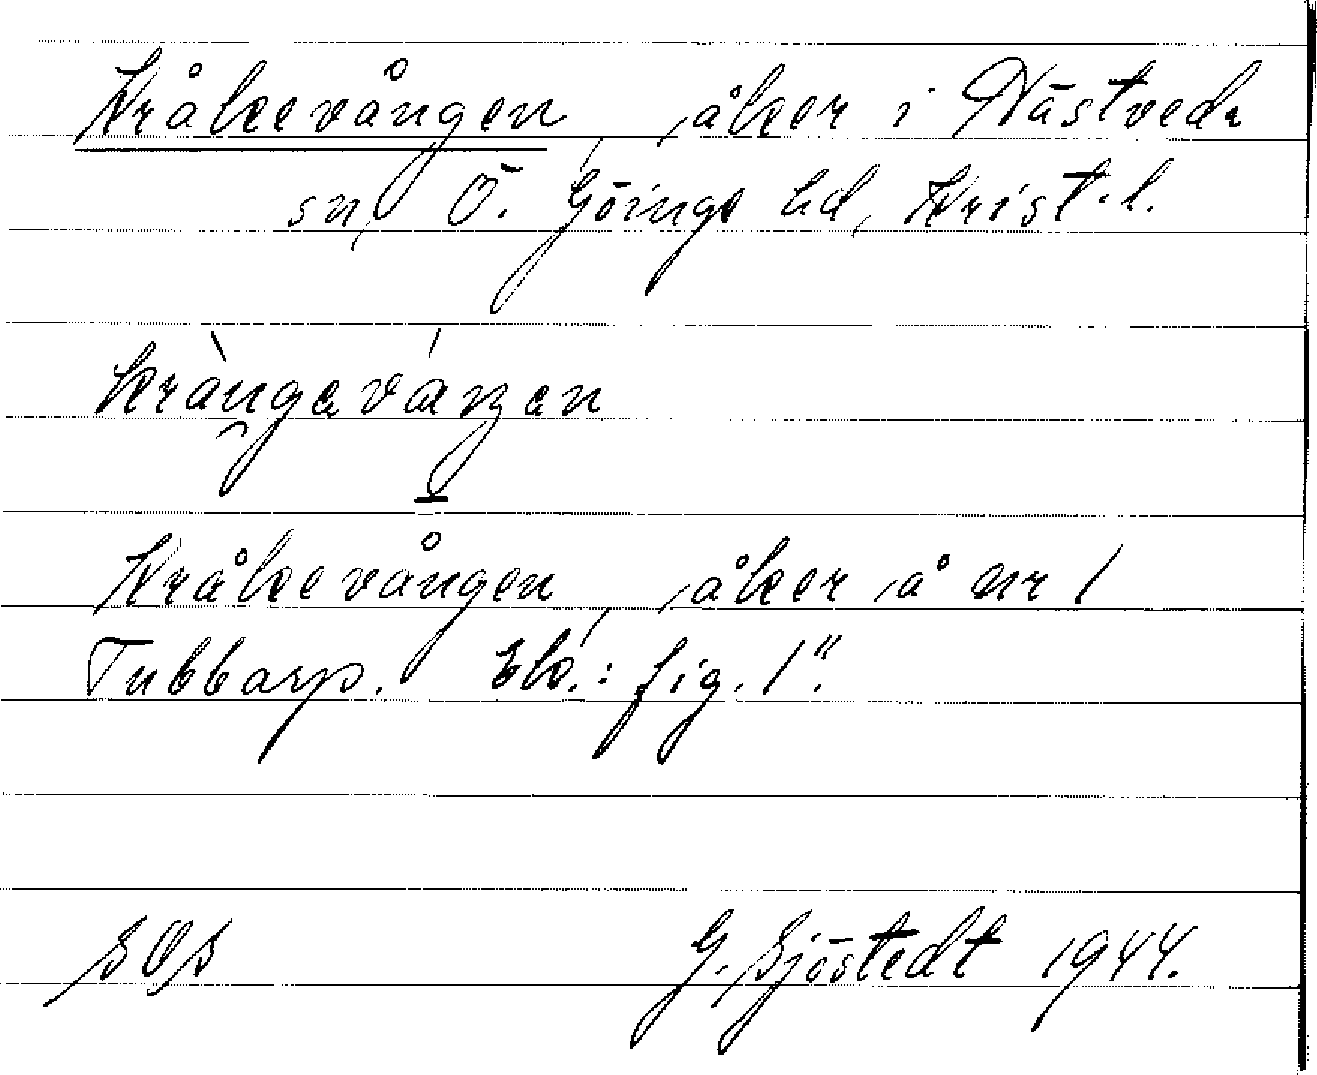 Kråkevången, åker i Nästveda
sn, Ö. Göinge hd, Krist. l.
Kråkevången, åker å nr 1
Tubbarp. Ek.: fig. 1".
SOS G. Sjöstedt 1944.